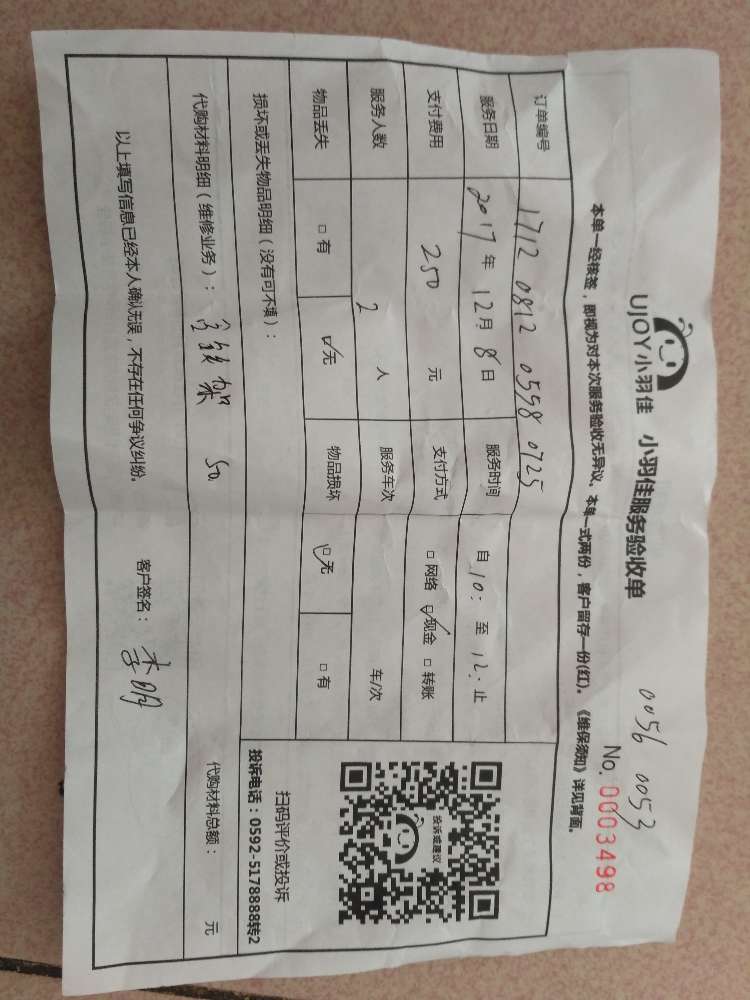 UJOY小羽佳 小羽佳服务验收单
0056 0053
No. 0003498
本单一经核签，即视为对本次服务验收无异议、本单一式两份，客户留存一份(红)。《维保须知》详见背面。
订单编号 1712 0812 0558 0725
服务日期 2017年 12月 8日 服务时间 自 10: 至 12: 止
支付费用 250 元 支付方式 □ 网络 ☑ 现金 □ 转账
服务人数 2 人 服务车次 车/次
物品丢失 □ 有 ☑ 无 物品损坏 ☑ 无 □ 有
损坏或丢失物品明细（没有可不填）：
投诉或建议
扫码评价或投诉
投诉电话：0592-5178888转2
代购材料明细（维修业务）： 架 50 代购材料总额： 元
以上填写信息已经本人确认无误，不存在任何争议纠纷。 客户签名： 李明